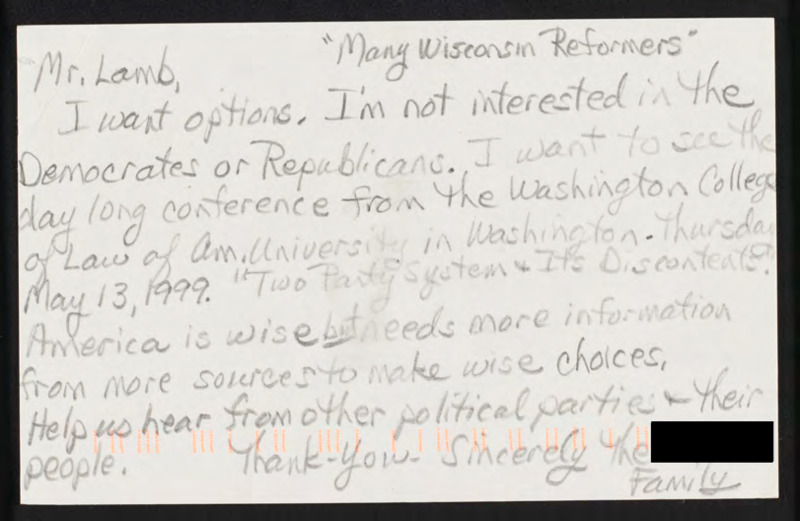 "Many Wisconsin Reformers"
Mr. Lamb,
I want options. I'm not interested in the
Democrates or Republicans. I want to see the
day long conference from the Washington College
of Law of Am. University in Washington. Thursday
May 13, 1999. "Two Party System & It's Discontents".
America is wise but needs more information
from more sources to make wise choices,
Help us hear from other political parties & their
people. Thank-You- Sincerely the
Family